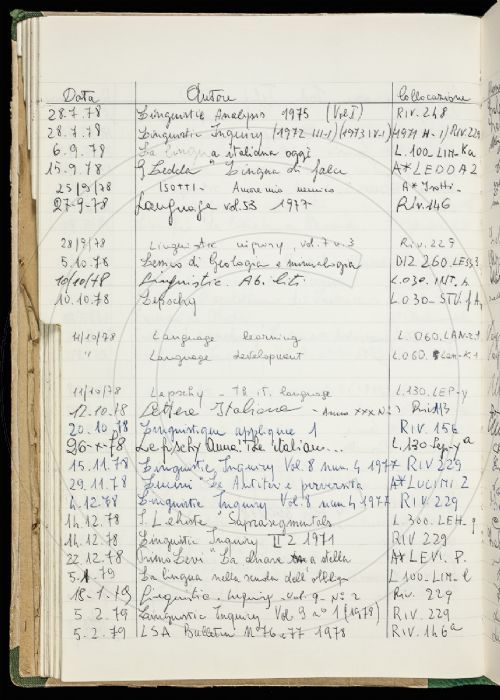 Data Autore Collocazione
28.7.78 Linguistic Analysis 1975 (Vol I) RIV. 248
28.7.78 Linguistic Inquiry (1972 III-1) (1973 IV-1) (1971 II-1) RIV. 229
6.9.78 La lingua italiana oggi L.100_LIM_Ka
15.9.78 G. Ledda "Lingua di falu A*LEDDA 2
25/9/78 ISOTTI - Amore mio nemico A* Isotti -
27-9-78 Language vol. 53 1977 Riv. 146
28/9/78 Linguistic inquiry, vol. 7 n. 3 Riv. 229
5.10.78 Lessico di Geologia e mineralogia DIZ 260. LESS. 3
10/10/78 Linguistic. Abiliti L.030. INT.
10.10.78 Lepschy L030_STU.
11/10/78 Language learning L. 060. LAN.
" Language development L.060.
11/10/78 Lepschy - The it. language L.130. LEP-y
12.10.78 Lettere Italiane - Anno XXX N. Riv.
20.10.78 Linguistique appliquée 1 RIV. 156
26-X-78 Lepschy Anna: The italian... L.130-Lep-ya
15.11.78 Linguistic Inquiry Vol. 8 num. 4 1977 RIV 229
29.11.78 Lucini "Le Antite e perversità A*LUCINI 2
4.12.78 Linguistic Inquiry Vol. 8 num 4 1977 RIV. 229
14.12.78 I. Lehiste "Suprasegmentals L. 300. LEH.
14.12.78 Linguistic Inquiry II 2 1971 RIV 229
22.12.78 Primo Levi "La chiave a stella A*LEVI. P.
5.1.79 La lingua nella scuola dell' L 100_LIM_
18-1.79 Linguistic. Inquiry. Vol. 9- No 2 Riv. 229
5.2.79 Linguistic Inquiry Vol. 9 no 1 (1978) RIV. 229
5.2.79 LSA Bulletin No 76 e 77 1978 RIV. 146a